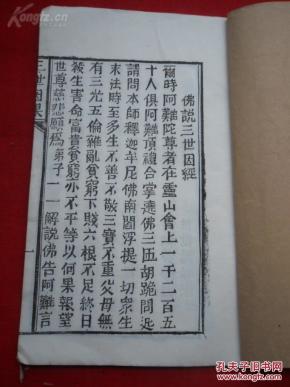 佛說三世因經
爾時阿難陀尊者在靈山會上一千二百五
十人俱阿難頂禮合掌遶佛三匝胡跪問
請問本師釋迦牟尼佛南閻浮提一切衆生
末法時至多生不善不敬三寶不重父母無
有三光五倫雜亂貧窮下賤六根不足終日
殺生害命富貴貧窮亦不平等以何果報望
世尊慈悲願爲弟子一一解說佛告阿難言
三世因果
一
孔夫子旧书网